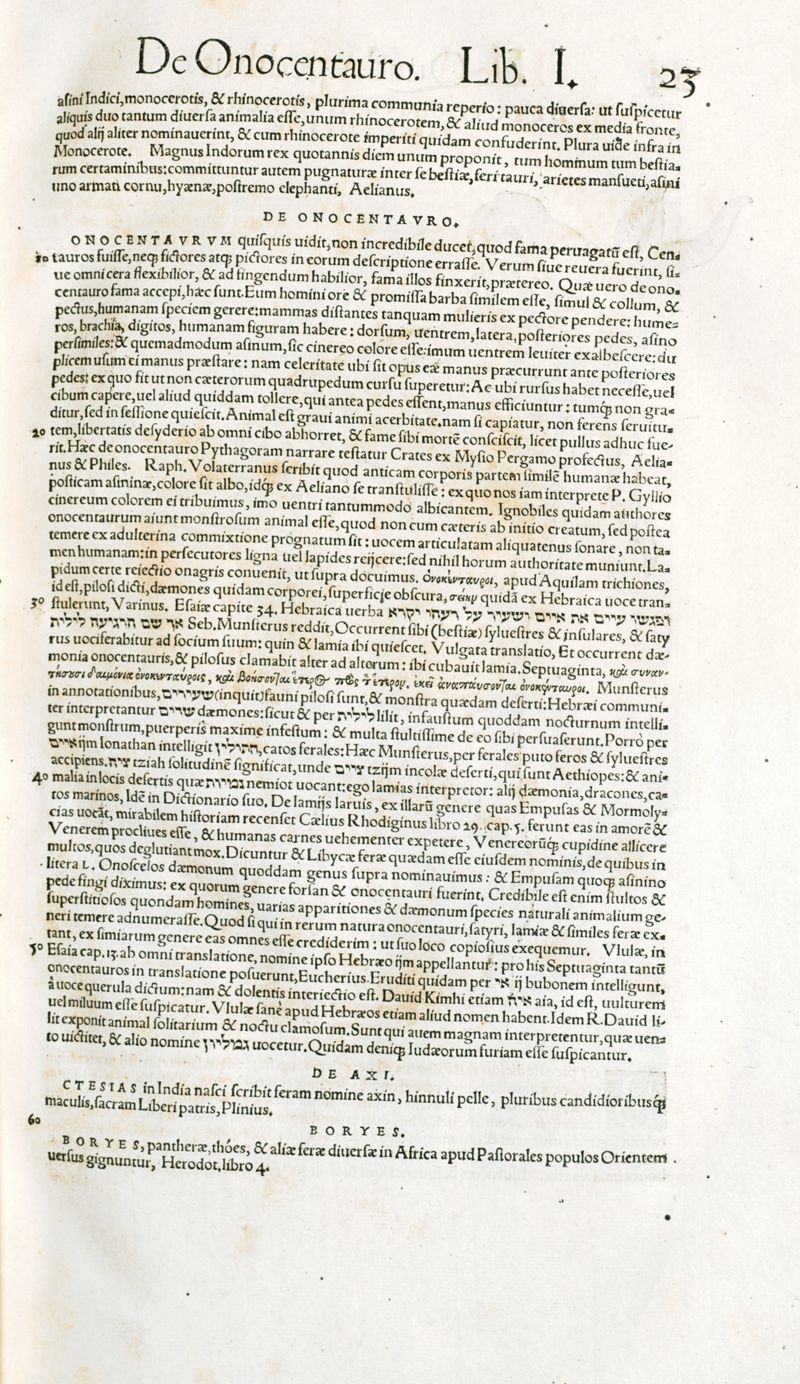 De Onocentauro. Lib. I. 23
asini Indici, monocerotis, & rhinocerotis, plurima communia reperio: pauca diuersa: ut suspicetur
aliquis duo tantum diuersa animalia esse, unum rhinocerotem, & aliud monoceros ex media fronte,
quod alij aliter nominauerint, & cum rhinocerote imperiti quidam confuderint. Plura uide infra in
Monocerote. Magnus Indorum rex quotannis diem unum proponit, tum hominum tum bestia-
rum certaminibus: committuntur autem pugnaturæ inter se bestiæ, feri tauri, arietes mansueti, asini
uno armati cornu, hyænæ, postremo elephanti, Aelianus.
DE ONOCENTAVRO.
ONOCENTAVRVM quisquis uidit, non incredibile ducet, quod fama peruagatũ est, Cen-
10 tauros fuisse, neq́; fictores atq́; pictores in eorum descriptione errasse. Verum siue reuera fuerint, si-
ue omni cera flexibilior, & ad fingendum habilior, fama illos finxerit, prætereo. Quæ uero de ono-
centauro fama accepi, hæc sunt. Eum homini ore & promissa barba similem esse, simul & collum, &
pectus, humanam speciem gerere: mammas distantes tanquam mulieris ex pectore pendere: hume-
ros, brachia, digitos, humanam figuram habere: dorsum, uentrem, latera, posteriores pedes, asino
persimiles: & quemadmodum asinum, sic cinereo colore esse: imum uentrem leuiter exalbescere: du
plicem usum ei manus præstare: nam celeritate ubi sit opus eæ manus præcurrunt ante posteriores
pedes: ex quo fit ut non cæterorum quadrupedum cursu superetur: Ac ubi rursus habet necesse, uel
cibum capere, uel aliud quiddam tollere, qui antea pedes essent, manus efficiuntur: tumq́; non gra-
ditur, sed in sessione quiescit. Animal est graui animi acerbitate. nam si capiatur, non ferens seruitu-
20 tem, libertatis desyderio ab omni cibo abhorret, & fame sibi mortẽ consciscit, licet pullus adhuc fue-
rit. Hæc de onocentauro Pythagoram narrare testatur Crates ex Mysio Pergamo profectus, Aelia-
nus & Philes. Raph. Volaterranus scribit quod anticam corporis partem similẽ humanæ habeat,
posticam asininæ, colore sit albo, idq́; ex Aeliano se transtulisse: ex quo nos iam interprete P. Gyllio
cinereum colorem ei tribuimus, imo uentri tantummodo albicantem. Ignobiles quidam authores
onocentaurum aiunt monstrosum animal esse, quod non cum cæteris ab initio creatum, sed postea
temere ex adulterina commixtione prognatum sit: uocem articulatam aliquatenus sonare, non ta-
men humanam: in persecutores ligna uel lapides reijcere: sed nihil horum authoritate muniunt. La-
pidum certe reiectio onagris conuenit, ut supra docuimus. ὀνοκένταυροι, apud Aquilam trichiones,
id est, pilosi dicti, dæmones quidam corporei, superficie obscura, quidã ex Hebraica uoce tran-
30 stulerunt, Varinus. Esaiæ capite 34. Hebraica uerba ופגשו עיים את איים ושעיר על רעהו יקרא
אך שם הרגיעה לילית Seb. Munsterus reddit, Occurrent sibi (bestiæ) syluestres & insulares, & saty
rus uociferabitur ad socium suum: quin & lamia ibi quiescet. Vulgata translatio, Et occurrent dæ-
monia onocentauris, & pilosus clamabit alter ad alterum: ibi cubauit lamia. Septuaginta, καὶ συναν-
τήσουσι δαιμόνια ὀνοκενταύροις, καὶ βοήσονται ἕτερος πρὸς ἕτερον, ἐκεῖ ἀναπαύσονται ὀνοκένταυροι. Munsterus
in annotationibus, שעירים (inquit) fauni pilosi sunt, & monstra quædam deserti: Hebræi communi-
ter interpretantur שדים dæmones: sicut & per לילית lilit, infaustum quoddam nocturnum intelli-
gunt monstrum, puerperis maxime infestum: & multa stultissime de eo sibi persuaserunt. Porrò per
איים ijm Ionathan intelligit חתולין, catos ferales: Hæc Munsterus, per ferales puto feros & syluestres
accipiens. ציה tziah solitudinẽ significat, unde ציים tzijm incolæ deserti, qui sunt Aethiopes: & ani-
40 malia in locis desertis quæ נמיות nemiot uocant: ego lamias interpretor: alij dæmonia, dracones, ca-
tos marinos, Idẽ in Dictionario suo. De lamijs laruis, ex illarũ genere quas Empusas & Mormoly-
cias uocãt, mirabilem historiam recenset Cælius Rhodiginus libro 29. cap. 5. ferunt eas in amorẽ &
Venerem procliues esse, & humanas carnes uehementer expetere, Venereorũq́; cupidine allicere
multos, quos deglutiant mox. Dicuntur & Libycæ feræ quædam esse eiusdem nominis, de quibus in
litera L. Onoscelos dæmonum quoddam genus supra nominauimus: & Empusam quoq́; asinino
pede fingi diximus: ex quorum genere forsan & onocentauri fuerint. Credibile est enim stultos &
superstitiosos quondam homines, uarias apparitiones & dæmonum species naturali animalium ge-
neri temere adnumerasse. Quod si qui in rerum natura onocentauri, satyri, lamiæ & similes feræ ex-
tant, ex simiarum genere eas omnes esse crediderim: ut suo loco copiosius exequemur. Vlulæ, in
50 Esaia cap. 13. ab omni translatione, nomine ipso Hebræo ijm appellantur: pro his Septuaginta tantũ
onocentauros in translatione posuerunt, Eucherius. Eruditi quidam per אי ij bubonem intelligunt,
à uoce querula dictum: nam & dolentis interiectio est. Dauid Kimhi etiam איה aía, id est, uulturem
uel miluum esse suspicatur. Vlulæ sanè apud Hebræos etiam aliud nomen habent. Idem R. Dauid li-
lit exponit animal solitarium & noctu clamosum. Sunt qui auem magnam interpretentur, quæ uen-
to uictitet, & alio nomine גמוליון uocetur. Quidam deniq́; Iudæorum furiam esse suspicantur.
DE AXI.
CTESIAS in India nasci scribit feram nomine axin, hinnuli pelle, pluribus candidioribusq́;
maculis, sacram Liberi patris, Plinius.
60
BORYES.
BORYES, pantheræ, thóes, & aliæ feræ diuersæ in Africa apud Pastorales populos Orientem
uersus gignuntur, Herodot. libro 4.